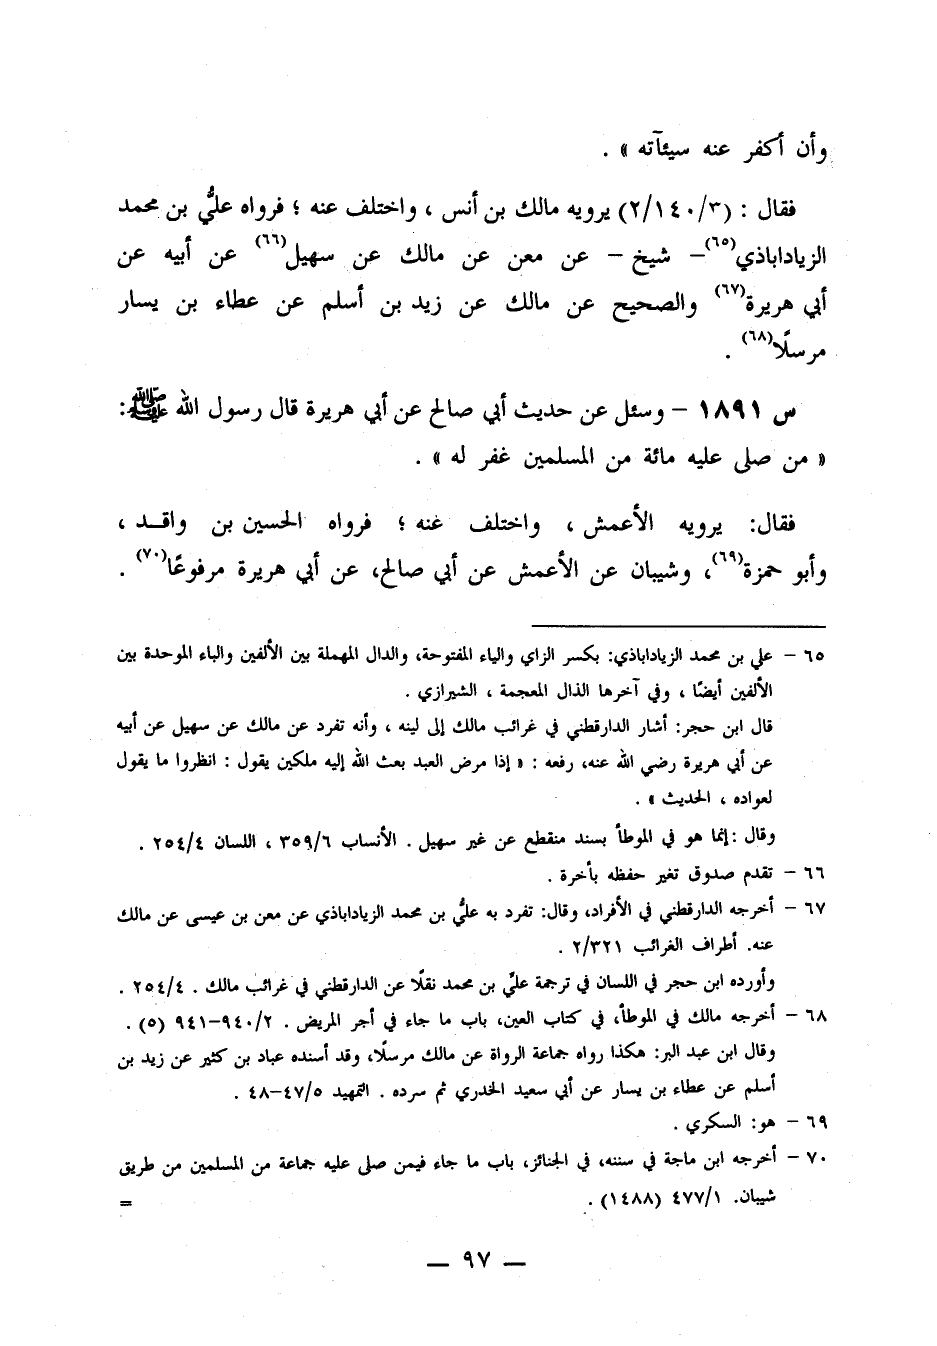 وأن أكفر عنه سيئآته » .
فقال : (٢/١٤٠/٣) يرويه مالك بن أنس ، واختلف عنه ؛ فرواه عليُّ بن محمد
الزياداباذي(٦٥)– شيخ – عن معن عن مالك عن سهيل(٦٦) عن أبيه عن
أبي هريرة(٦٧) والصحيح عن مالك عن زيد بن أسلم عن عطاء بن يسار
مرسلًا(٦٨) .
س ١٨٩١ – وسئل عن حديث أبي صالح عن أبي هريرة قال رسول الله ﷺ:
« من صلى عليه مائة من المسلمين غفر له » .
فقال: يرويه الأعمش ، واختلف عنه ؛ فرواه الحسين بن واقـد ،
وأبو حمزة(٦٩)، وشيبان عن الأعمش عن أبي صالح، عن أبي هريرة مرفوعًا(٧٠) .
٦٥ – علي بن محمد الزياداباذي: بكسر الزاي والياء المفتوحة، والدال المهملة بين الألفين والباء الموحدة بين
الألفين أيضًا ، وفي آخرها الذال المعجمة ، الشيرازي .
قال ابن حجر: أشار الدارقطني في غرائب مالك إلى لينه ، وأنه تفرد عن مالك عن سهيل عن أبيه
عن أبي هريرة رضي الله عنه، رفعه : « إذا مرض العبد بعث الله إليه ملكين يقول : انظروا ما يقول
لعواده ، الحديث » .
وقال :إنما هو في الموطأ بسند منقطع عن غير سهيل . الأنساب ٣٥٩/٦ ، اللسان ٢٥٤/٤ .
٦٦ – تقدم صدوق تغير حفظه بأخرة .
٦٧ – أخرجه الدارقطني في الأفراد، وقال: تفرد به عليُّ بن محمد الزياداباذي عن معن بن عيسى عن مالك
عنه. أطراف الغرائب ٢/٣٢١ .
وأورده ابن حجر في اللسان في ترجمة عليِّ بن محمد نقلًا عن الدارقطني في غرائب مالك . ٢٥٤/٤ .
٦٨ – أخرجه مالك في الموطأ، في كتاب العين، باب ما جاء في أجر المريض . ٩٤٠/٢–٩٤١ (٥) .
وقال ابن عبد البر: هكذا رواه جماعة الرواة عن مالك مرسلًا، وقد أسنده عباد بن كثير عن زيد بن
أسلم عن عطاء بن يسار عن أبي سعيد الخدري ثم سرده . التمهيد ٤٧/٥–٤٨ .
٦٩ – هو: السكري .
٧٠ – أخرجه ابن ماجة في سننه، في الجنائز، باب ما جاء فيمن صلى عليه جماعة من المسلمين من طريق
شيبان. ٤٧٧/١ (١٤٨٨) . =
— ٩٧ —